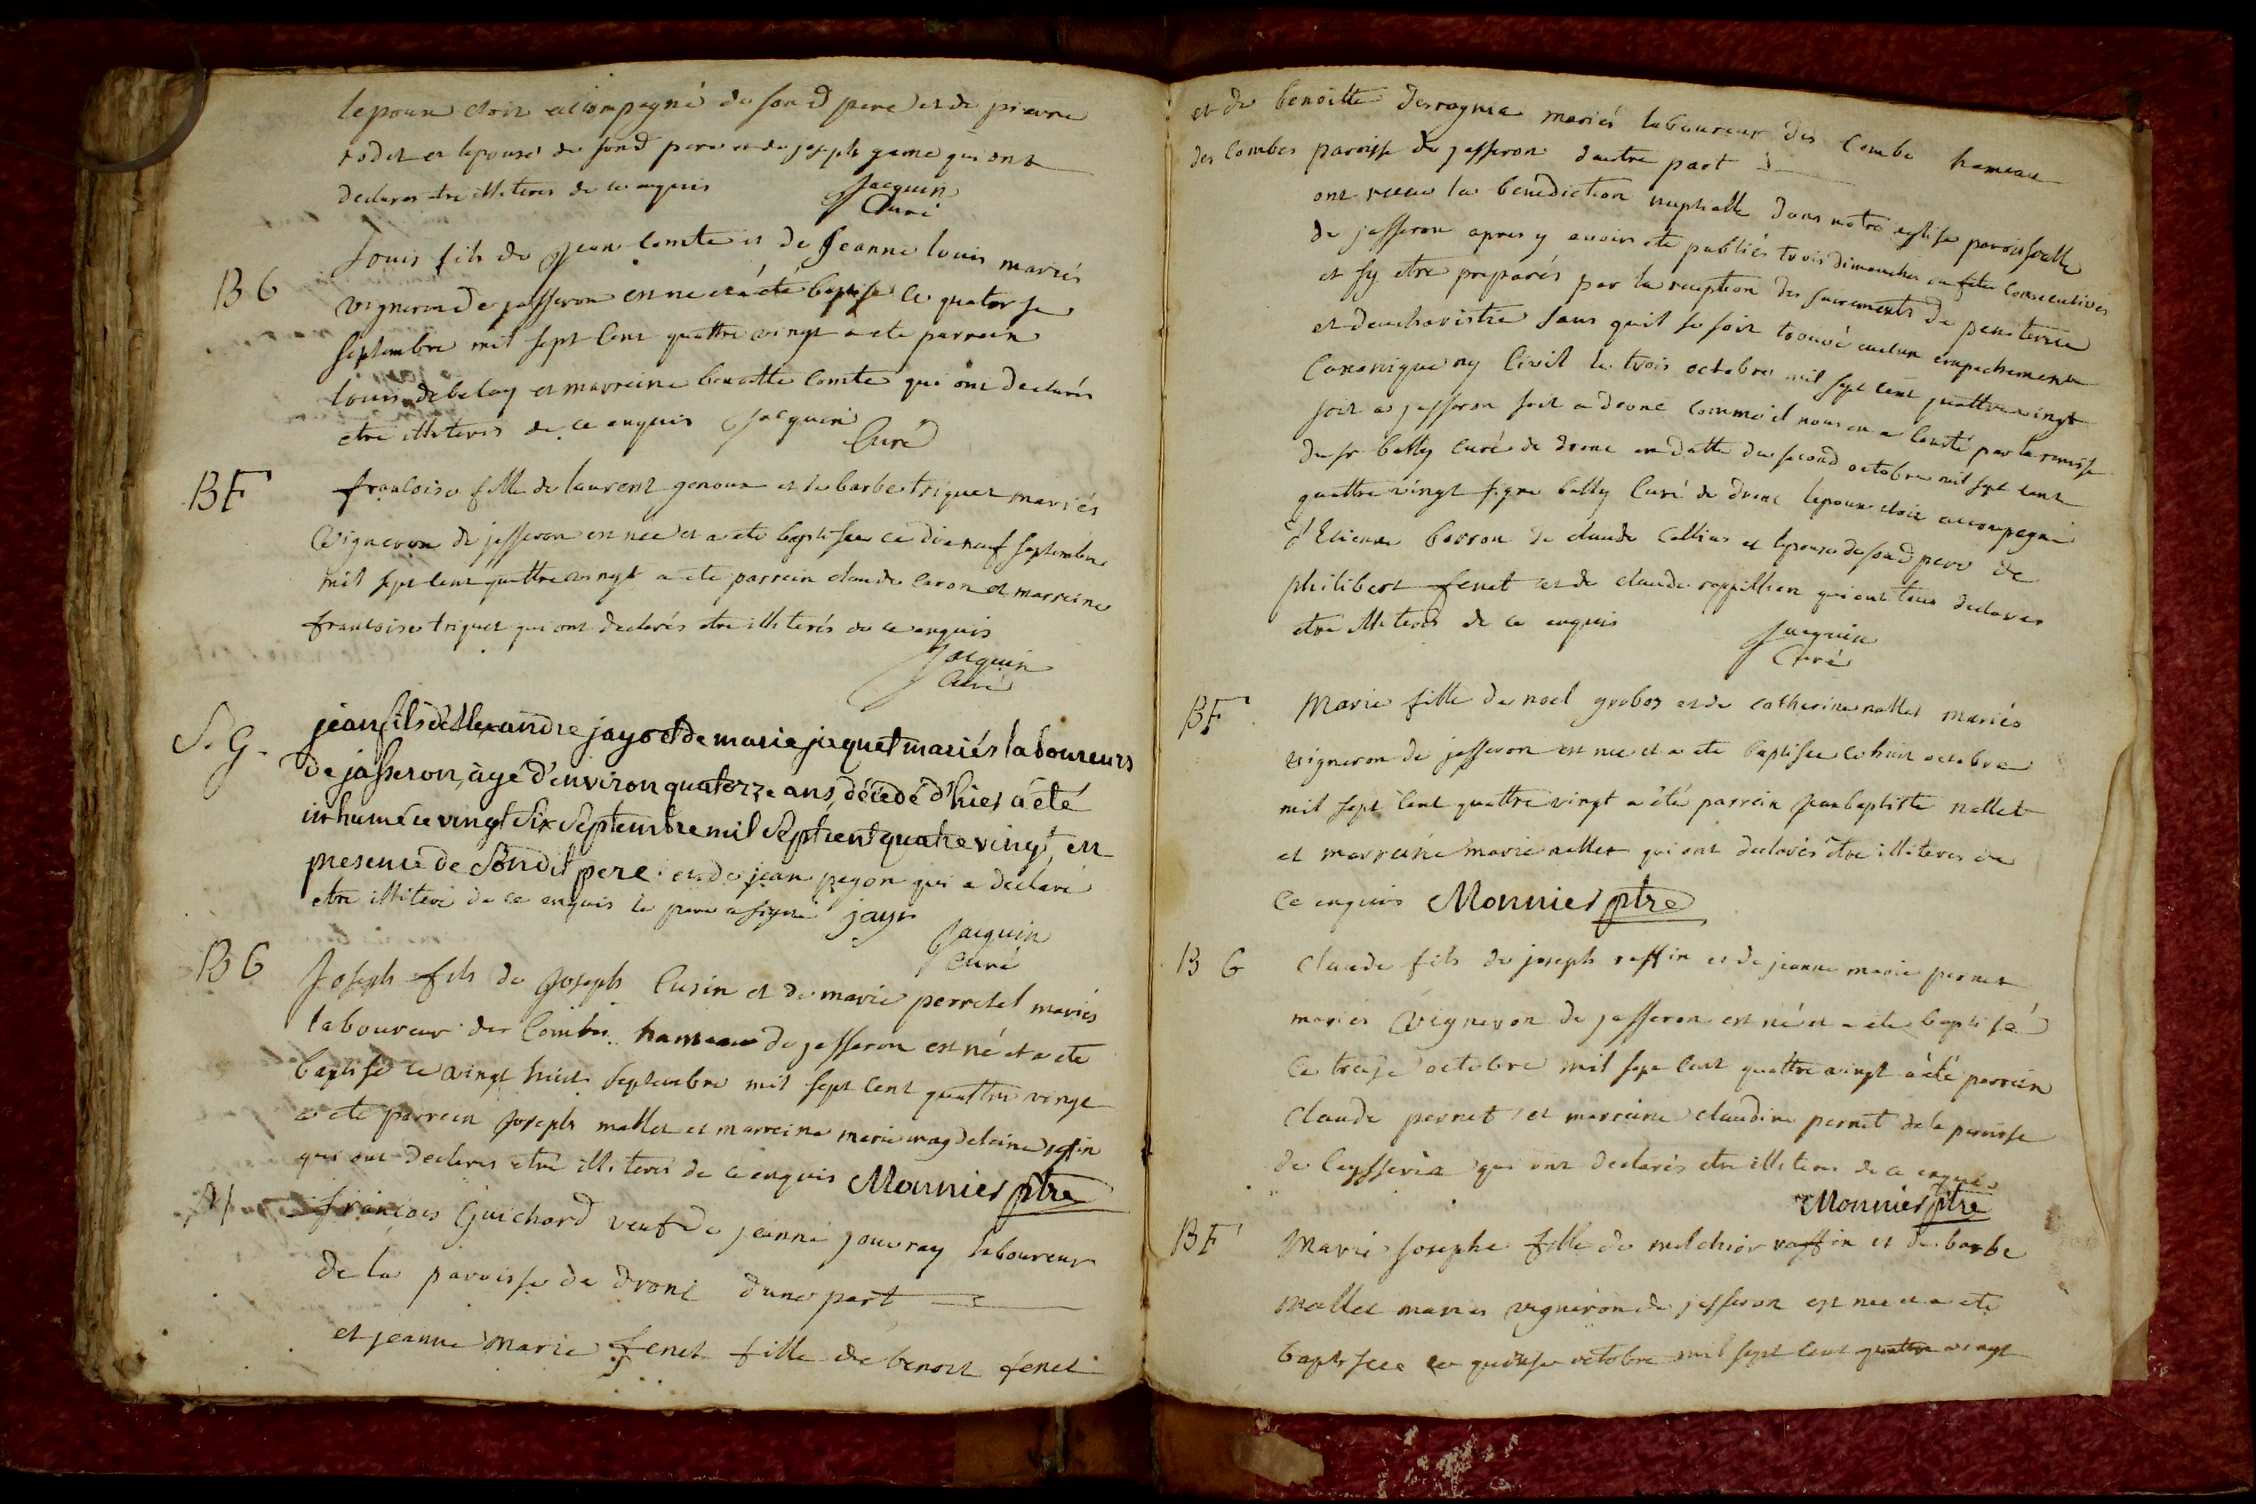 lepoux etoit accompagné de son d pere et de pierre
rodet et lepouse de son d pere et de joseph game qui ont
declares etre illiteres de ce enquis Jacquin
Curé
B G
Louis fils de Jean Comte et de Jeanne Louis mariés
vigneron de jasseron est né et a été baptisé ce quatorse
septembre mil sept cent quattre vingt a ete parrein
louis debelay et marreine benoitte Comte qui ont declarés
etre illiteres de ce enquis Jacquin
Curé
BF
francoise fille de laurent genoux et de barbe triquet mariés
Vigneron de jasseron est nee et a ete baptisee ce dixneuf septembre
mil sept cent quattre vingt a ete parrein claude Caron et marreine
francoise triquet qui ont declarés etre illiterés de ce enquis
Jacquin
Curé
S. G.
jean fils d'Alexandre jayr et de marie jacquet mariés laboureurs
de jasseron, âgé d'environ quatorze ans, décedé d'hier a été
inhumé ce vingt Six Septembre mil Sept cent quatre vingt, en
presence de Son dit pere et de jean pegon qui a declaré
etre illiteré de ce enquis le pere a signé jayr
Jacquin
Curé
B G
Joseph fils de Joseph Cusin et de marie perretel mariés
laboureur des Combes hameau de jasseron est né et a ete
baptisé ce vingt huit septembre mil sept cent quattre vingt
a ete parrein Joseph mallet et marreine marie magdeleine raffin
qui ont declarés etre illiteres de ce enquis Monnier ptre
M
françois Guichard veuf de jeanne jouvray laboureur
de la paroisse de dront dune part
et jeanne Marie fenet fille de benoit fenet
et de benoitte desrognia mariés laboureur des Combe hameau
des Combes paroisse de jasseron dautre part
ont receu la benediction nuptialle dans notre eglise paroissialle
de jasseron apres y avoir ete publiés trois dimanches ou fetes consecutives
et sy etre preparés par la reception des sacrements de penitence
et deucharistie sans quil se soit trouvé aucun empechement
Canonique ny Civil le trois octobre mil sept cent quattre vingt
soit a jasseron soit a dronc comme il nous en a Consté par la remise
du sr bally curé de dronc en datte du second octobre mil sept cent
quattre vingt signe bally Curé de dronc lepoux etoit accompagné
d'Etienne barron de claude Callias et lepouse de son d pere de
philibert fenet et de claude roppillion qui ont tous declares
etre illiteres de ce enquis Jacquin
Curé
BF
Marie fille de noel grobos et de catherine nallet mariés
vigneron de jasseron est nee et a ete baptisee ce huit octobre
mil sept Cent quattre vingt a été parrein jean baptiste nallet
et marreine marie nallet qui ont declarés etre illiteres de
ce enquis Monnier ptre
B G
Claude fils de joseph raffin et de jeanne marie pernet
mariés Vigneron de jasseron est né et a ete baptisé
ce treise octobre mil sept Cent quattre vingt a été parrein
Claude pernet et marreine claudine pernet de la paroisse
de Ceysseria qui ont declarés etre illiteres de ce enquis
Monnier ptre
BF
Marie Josephe fille de melchior raffin et de barbe
Mallet mariés vigneron de jasseron est nee et a ete
baptisee ce quinse octobre mil sept cent quattre vingt